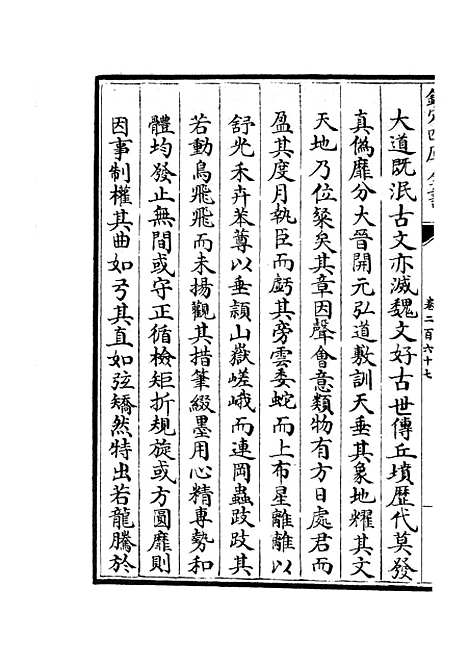 欽定四庫全書
卷二百六十七
大道既泯古文亦滅魏文好古世傳丘墳歴代莫發
真偽靡分大晉開元弘道敷訓天垂其象地耀其文
天地乃位粲矣其章因聲會意類物有方日處君而
盈其度月執臣而虧其旁雲委蛇而上布星離離以
舒光禾卉苯䔿以垂頴山嶽嵯峨而連岡蟲跂跂其
若動鳥飛飛而未揚觀其措筆綴墨用心精專勢和
體均發止無間或守正循檢矩折規旋或方圓靡則
因事制權其曲如弓其直如弦矯然特出若龍騰於